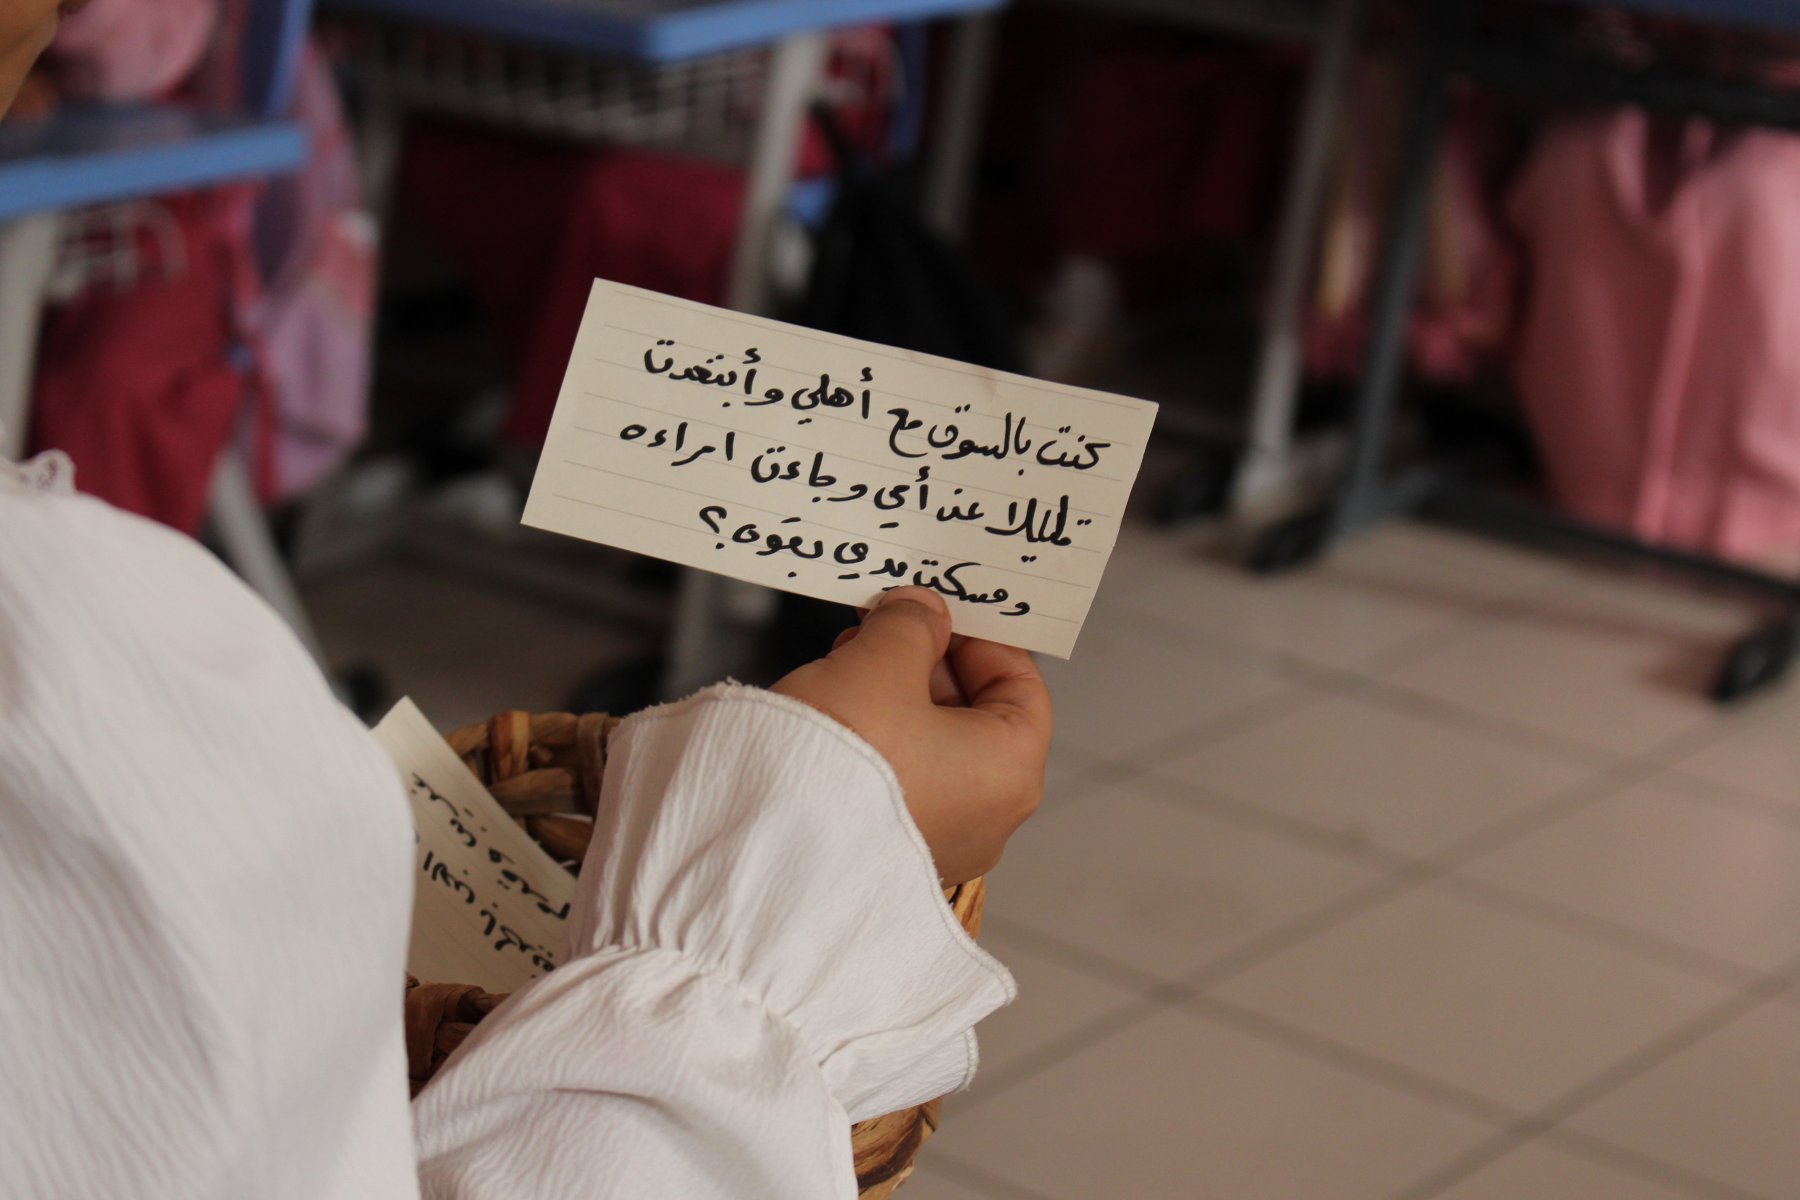 كنت بالسوق مع أهلي وأبتعدت
قليلا عن أمي وجاءت امراءه
ومسكت يدي بقوه؟